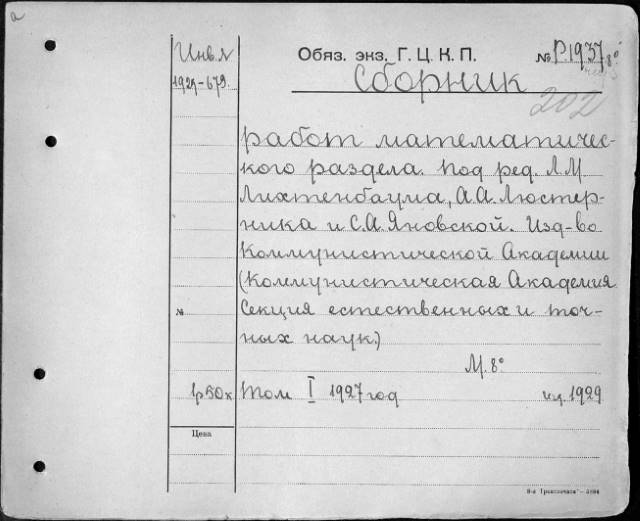 а
Инв. л
1929-679.
Обяз. экз. Г. Ц. К. П. № Р1937 8°
Сборник
202
работ математичес-
кого раздела. Под ред. Л.М
Лихтенбаума, А.А. Люстер-
ника и С.А. Яновской. Изд-во
Коммунистической Академии
(Коммунистическая Академия
№ Секция естественных и точ-
ных наук.)
М. 8°
1р50к Том I 1927 год 1929
Цена